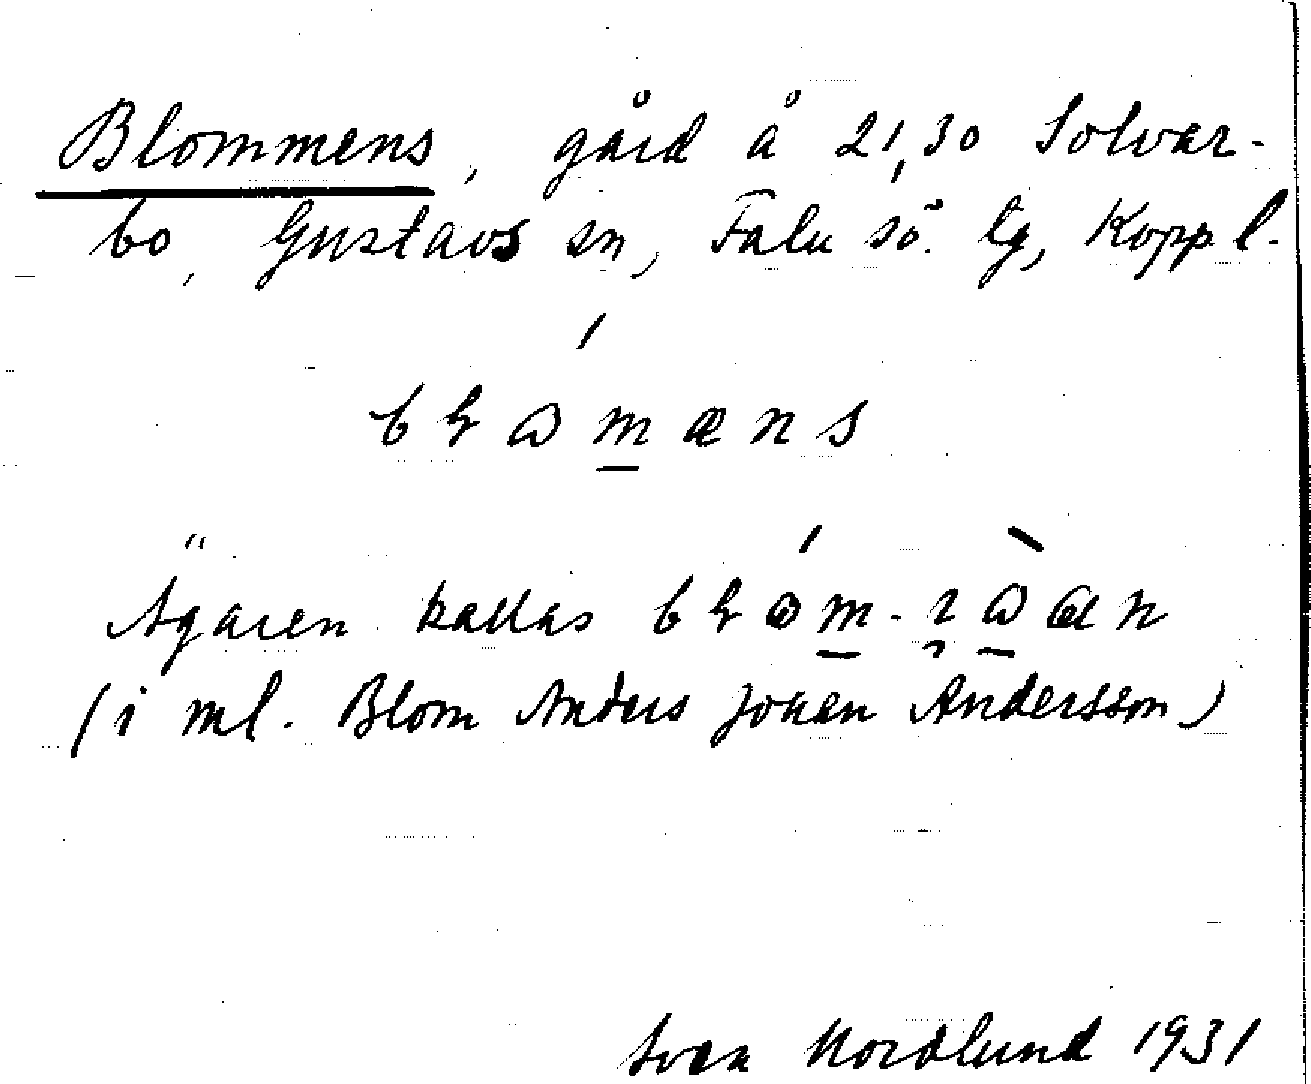 Blommens, gård å 21,30 Solvar-
bo, Gustavs sn, Falu sö. tg, Koppl.
Ägaren kallas
(i ml. Blom Anders Johan Andersson)
Sven Nordlund 1931